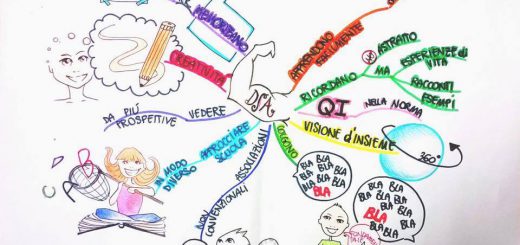 MEMORIZZANO
CREATIVITÀ
DSA
APPRENDONO
RICORDANO
MA
ASTRATTO
ESPERIENZE di
VITA
RACCONTI
ESEMPI
QI
NELLA NORMA
VISIONE d'INSIEME
360°
VEDERE
DA PIÙ
PROSPETTIVE
APPROCCIARE
SCUOLA
IN MODO
DIVERSO
ASSOCIAZIONI
NON
CONVENZIONALI
COLGONO
BLA
BLA BLA
BLA BLA
BLA BLA
BLA
BLA
BLA BLA
BLA BLA BLA
BLA BLA
BLA BLA
BLA BLA